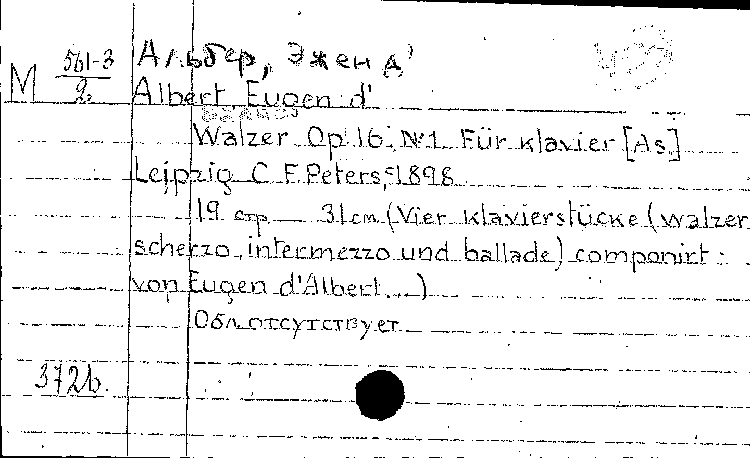 М 561-3
2.
Альбер, Эжен д'
Albert, Eugen d'
Walzer Op. 16, №1 Für Klavier [As.]
Leipzig C. F. Peters, c1898
19 стр. 31 cm (Vier Klavierstücke (walzer
scherzo, intermezzo und ballade) componirt:
von Eugen d'Albert...)
Обл. отсутствует
372b.